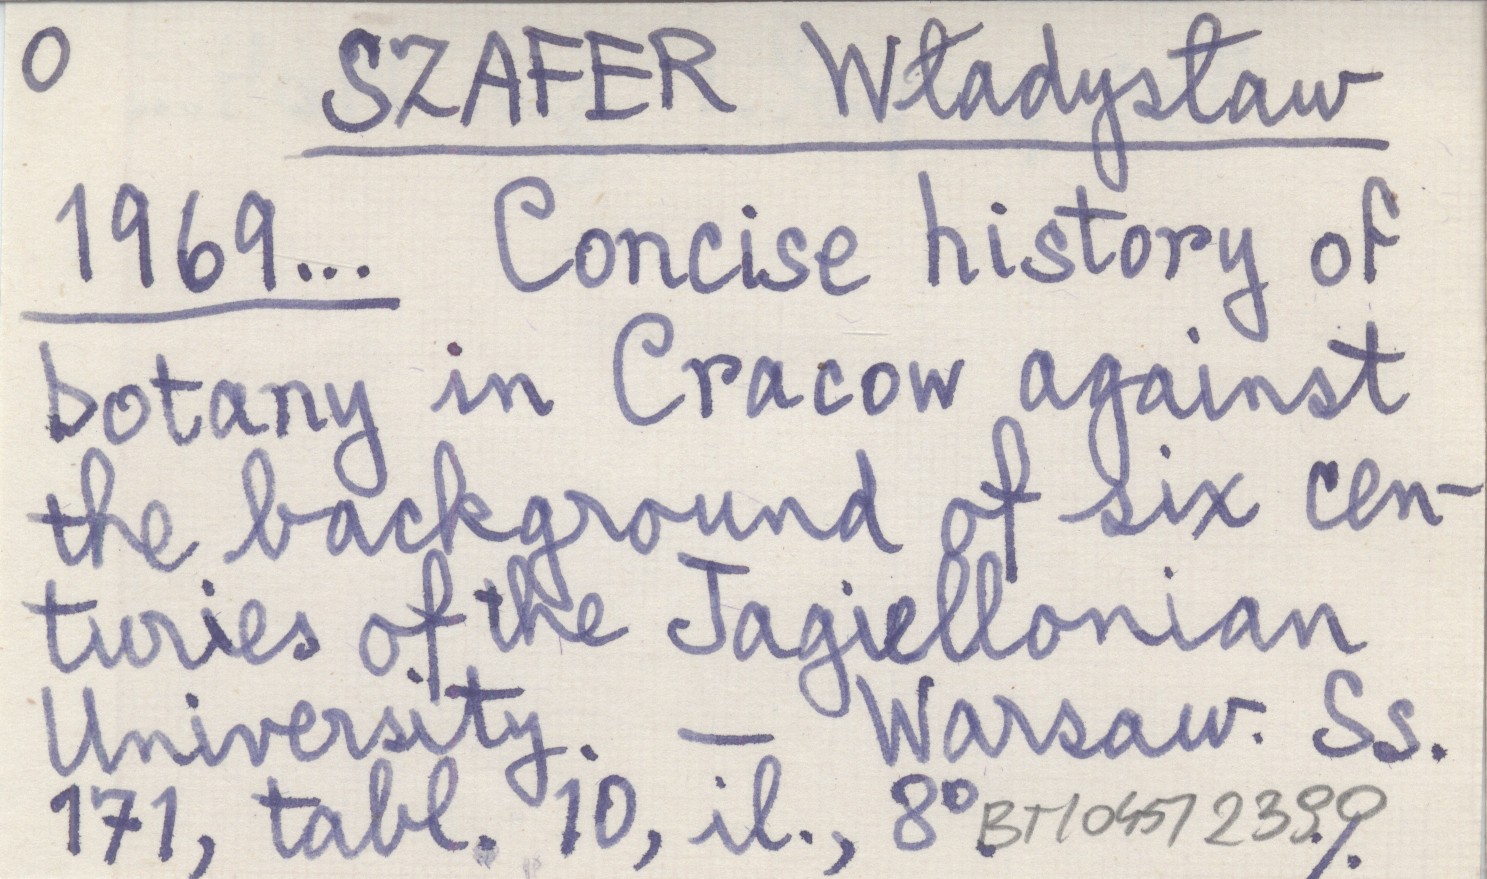 O SZAFER Władysław
1969... Concise history of
botany in Cracow against
the background of six cen-
turies of the Jagiellonian
University. — Warsaw. Ss.
171, tabl. 10, il., 8°.